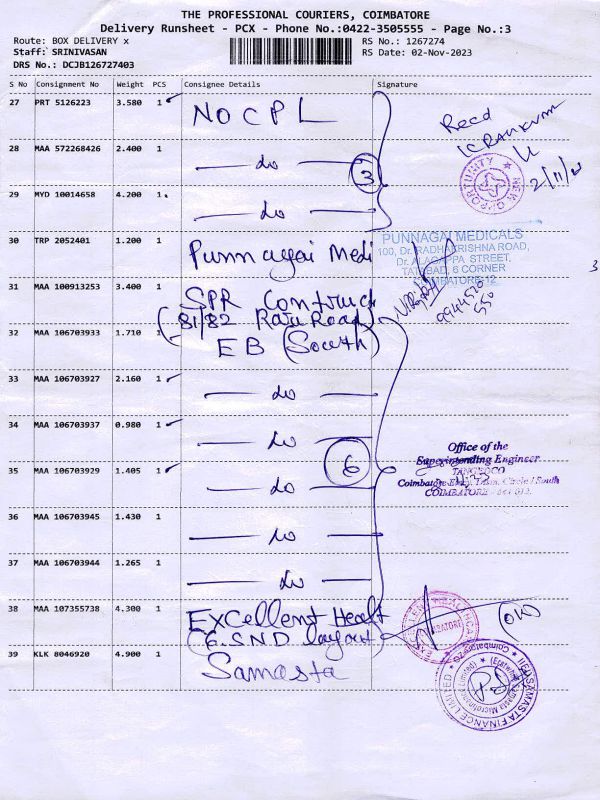 THE PROFESSIONAL COURIERS, COIMBATORE
Delivery Runsheet - PCX - Phone No.:0422-3505555 - Page No.:3
Route: BOX DELIVERY x
RS No.: 1267274
Staff: SRINIVASAN
RS Date: 02-Nov-2023
DRS No.: DCJB126727403
S No Consignment No Weight PCS Consignee Details Signature
27 PRT 5126223 3.580 1 NOCPL
Recd
28 MAA 572268426 2.400 1 do
3
29 MYD 10014658 4.200 1 do
30 TRP 2052401 1.200 1 Punnagai Medi
PUNNAGAI MEDICALS
100, Dr. RADHAKRISHNA ROAD,
Dr. ALAGAPPA STREET,
TATABAD, 6 CORNER
COIMBATORE-12
3
31 MAA 100913253 3.400 1 SPR Contruct
(81/82 Raju Road)
32 MAA 106703933 1.710 1 EB (South)
33 MAA 106703927 2.160 1 do
34 MAA 106703937 0.980 1 do
6
Office of the
Superintending Engineer
TANGEDCO
35 MAA 106703929 1.405 1 do
COIMBATORE
36 MAA 106703945 1.430 1 do
37 MAA 106703944 1.265 1 do
38 MAA 107355738 4.300 1 Excellent Healt
(G.S.N.D layout)
39 KLK 8046920 4.900 1 Samasta